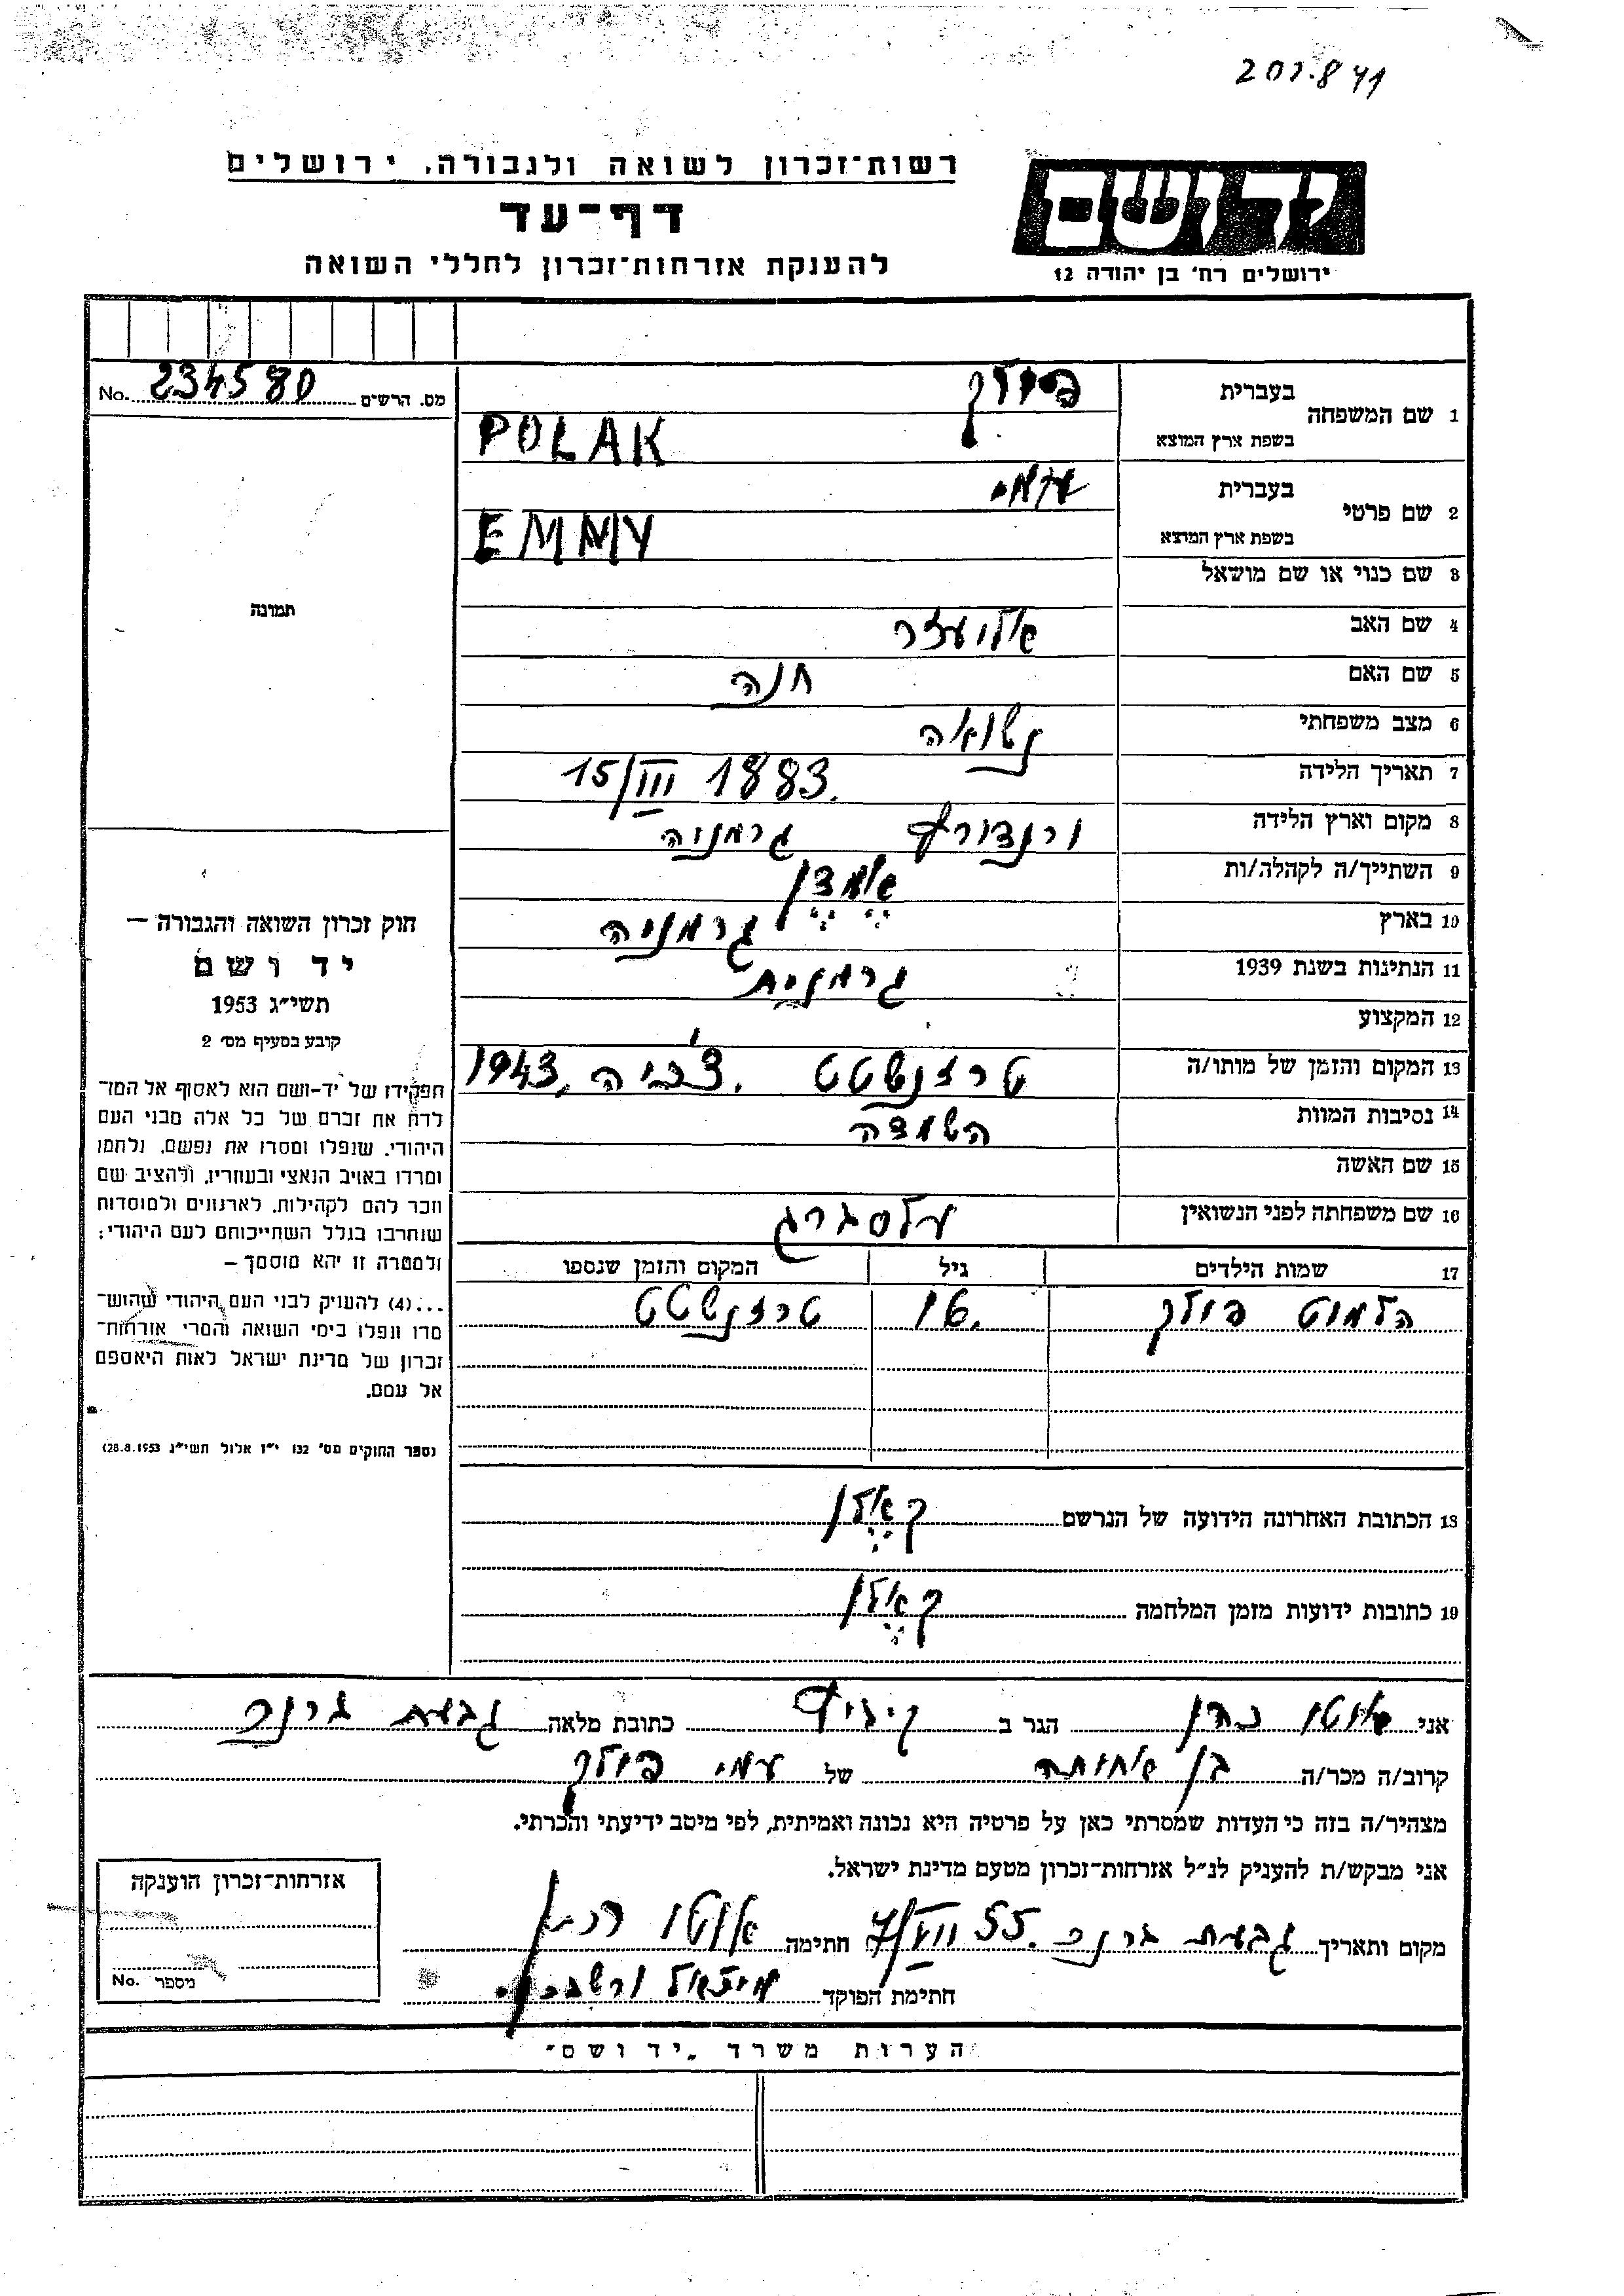 201.841
רשות־זכרון לשואה ולגבורה, ירושלים
דף־עד
להענקת אזרחות־זכרון לחללי השואה
יד ושם
ירושלים רח' בן יהודה 12
No. 234580 מס. הרשים
1 שם המשפחה בעברית פולק
בשפת ארץ המוצא POLAK
2 שם פרטי בעברית עמי
בשפת ארץ המוצא EMMY
3 שם כנוי או שם מושאל
4 שם האב אליעזר
5 שם האם חנה
6 מצב משפחתי נשואה
7 תאריך הלידה 15/III 1883.
8 מקום וארץ הלידה ורנדורף גרמניה
9 השתייך/ה לקהלה/ות אֶמדֶן
10 בארץ גרמניה
11 הנתינות בשנת 1939 גרמנית
12 המקצוע
13 המקום והזמן של מותו/ה טרזנשטט צ'כיה, 1943
14 נסיבות המוות השמדה
15 שם האשה
16 שם משפחתה לפני הנשואין ולסברג
17 שמות הילדים גיל המקום והזמן שנספו
הלמוט פולק 16. טרזנשטט
18 הכתובת האחרונה הידועה של הנרשם קֶלן
19 כתובות ידועות מזמן המלחמה קֶלן
תמונה
חוק זכרון השואה והגבורה —
יד ושם
תשי״ג 1953
קובע בסעיף מס' 2
תפקידו של יד-ושם הוא לאסוף אל המו־
לדת את זכרם של כל אלה מבני העם
היהודי, שנפלו ומסרו את נפשם, נלחמו
ומרדו באויב הנאצי ובעוזריו, ולהציב שם
וזכר להם לקהילות, לארגונים ולמוסדות
שנחרבו בגלל השתייכותם לעם היהודי;
ולמטרה זו יהא מוסמך —
...(4) להעניק לבני העם היהודי שהוש־
מדו ונפלו בימי השואה והמרי אזרחות־
זכרון של מדינת ישראל לאות היאספם
אל עמם.
(ספר החוקים מס' 132 י״ז אלול תשי״ג 28.8.1953)
אני אוטו כהן הגר ב כתובת מלאה גבעת ברנר
קרוב/ה מכר/ה בן אחותה של עמי פולק
מצהיר/ה בזה כי העדות שמסרתי כאן על פרטיה היא נכונה ואמיתית, לפי מיטב ידיעתי והכרתי.
אני מבקש/ת להעניק לנ״ל אזרחות־זכרון מטעם מדינת ישראל.
מקום ותאריך גבעת ברנר 7/VII 55. חתימה אוטו כהן
חתימת הפוקד
אזרחות־זכרון הוענקה
No. מספר
הערות משרד „יד ושם״